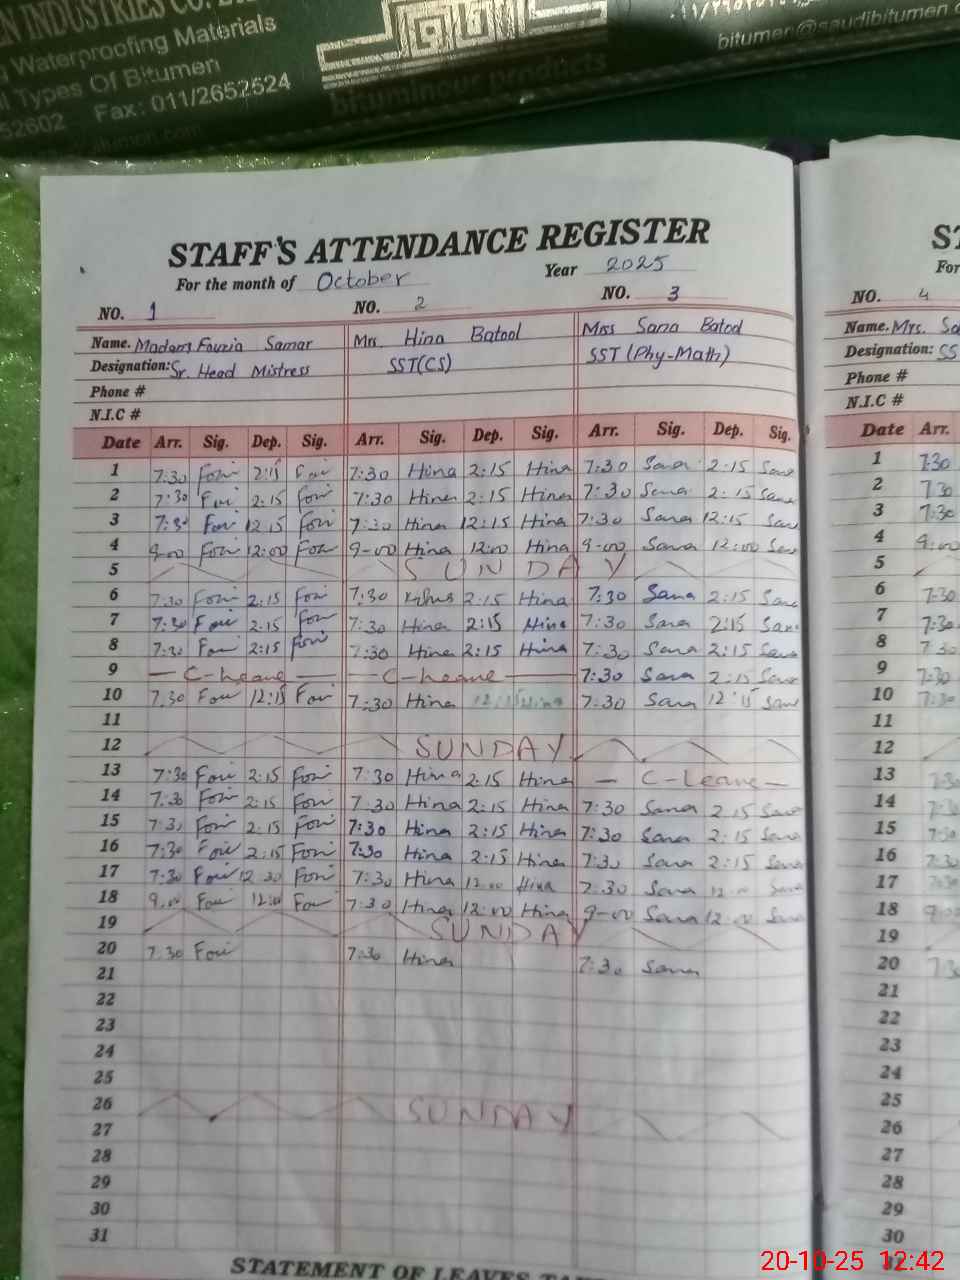 EN INDUSTRIES CO.
Waterproofing Materials
Types Of Bitumen
52602 Fax: 011/2652524
bituminour products
bitumen@saudibitumen.c
STAFF'S ATTENDANCE REGISTER
For the month of October Year 2025
NO. 1 NO. 2 NO. 3
Name. Madam Fouzia Samar Mrs. Hina Batool Miss Sana Batool
Designation: Sr. Head Mistress SST(CS) SST (Phy-Math)
Phone #
N.I.C #
Date Arr. Sig. Dep. Sig. Arr. Sig. Dep. Sig. Arr. Sig. Dep. Sig.
1 7:30 Fozi 2:15 Fozi 7:30 Hina 2:15 Hina 7:30 Sana 2:15 Sana
2 7:30 Fozi 2:15 Fozi 7:30 Hina 2:15 Hina 7:30 Sana 2:15 Sana
3 7:30 Fozi 12:15 Fozi 7:30 Hina 12:15 Hina 7:30 Sana 12:15 San
4 9-00 Fozi 12:00 Fozi 9-00 Hina 12:00 Hina 9-00 Sana 12:00 Sana
5 SUNDAY
6 7:30 Fozi 2:15 Fozi 7:30 2:15 Hina 7:30 Sana 2:15 Sana
7 7:30 Fozi 2:15 Fozi 7:30 Hina 2:15 Hina 7:30 Sana 2:15 Sana
8 7:30 Fozi 2:15 Fozi 7:30 Hina 2:15 Hina 7:30 Sana 2:15 Sana
9 — C-Leave — — C-Leave — 7:30 Sana 2:15 Sana
10 7:30 Fozi 12:15 Fozi 7:30 Hina 12:15 Hina 7:30 Sana 12:15 Sana
11
12 SUNDAY
13 7:30 Fozi 2:15 Fozi 7:30 Hina 2:15 Hina — C-Leave —
14 7:30 Fozi 2:15 Fozi 7:30 Hina 2:15 Hina 7:30 Sana 2:15 Sana
15 7:30 Fozi 2:15 Fozi 7:30 Hina 2:15 Hina 7:30 Sana 2:15 Sana
16 7:30 Fozi 2:15 Fozi 7:30 Hina 2:15 Hina 7:30 Sana 2:15 Sana
17 7:30 Fozi 12:30 Fozi 7:30 Hina 12:00 Hina 7:30 Sana Sana
18 9:00 Fozi 12:00 Fozi 7:30 Hina 12:00 Hina 9-00 Sana 12:00 Sana
19 SUNDAY
20 7:30 Fozi 7:30 Hina 7:30 Sana
21
22
23
24
25
26 SUNDAY
27
28
29
30
31
STATEMENT OF LEAVES
NO. 4
Name. Mrs.
Designation: SS
Phone #
N.I.C #
Date Arr.
1 7:30
2 7:30
3 7:30
4 9:00
5
6 7:30
7 7:30
8 7:30
9 7:30
10 7:30
11
12
13 7:30
14 7:30
15 7:30
16 7:30
17 7:30
18 9:00
19
20
21
22
23
24
25
26
27
28
29
30
20-10-25 12:42